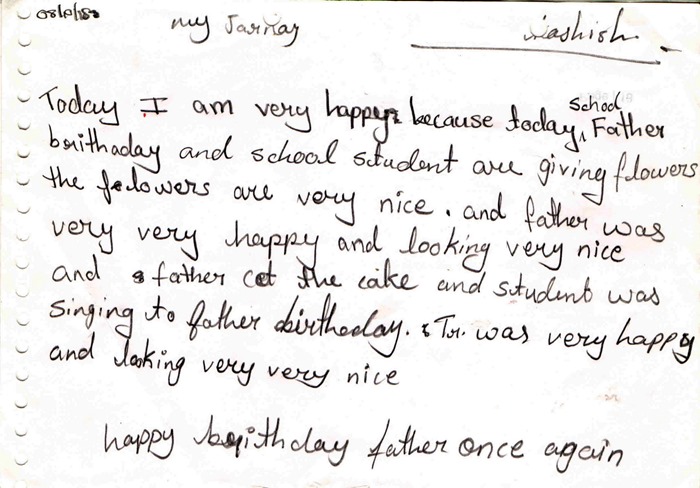 my Jarnay
Kashish
school
Today I am very happy because today, Father
brithaday and school student are giving flowers
the felowers are very nice. and father was
very very happy and looking very nice
and father cet the cake and student was
singing to father birthaday. Tr. was very happy
and looking very very nice
happy brithday father once again